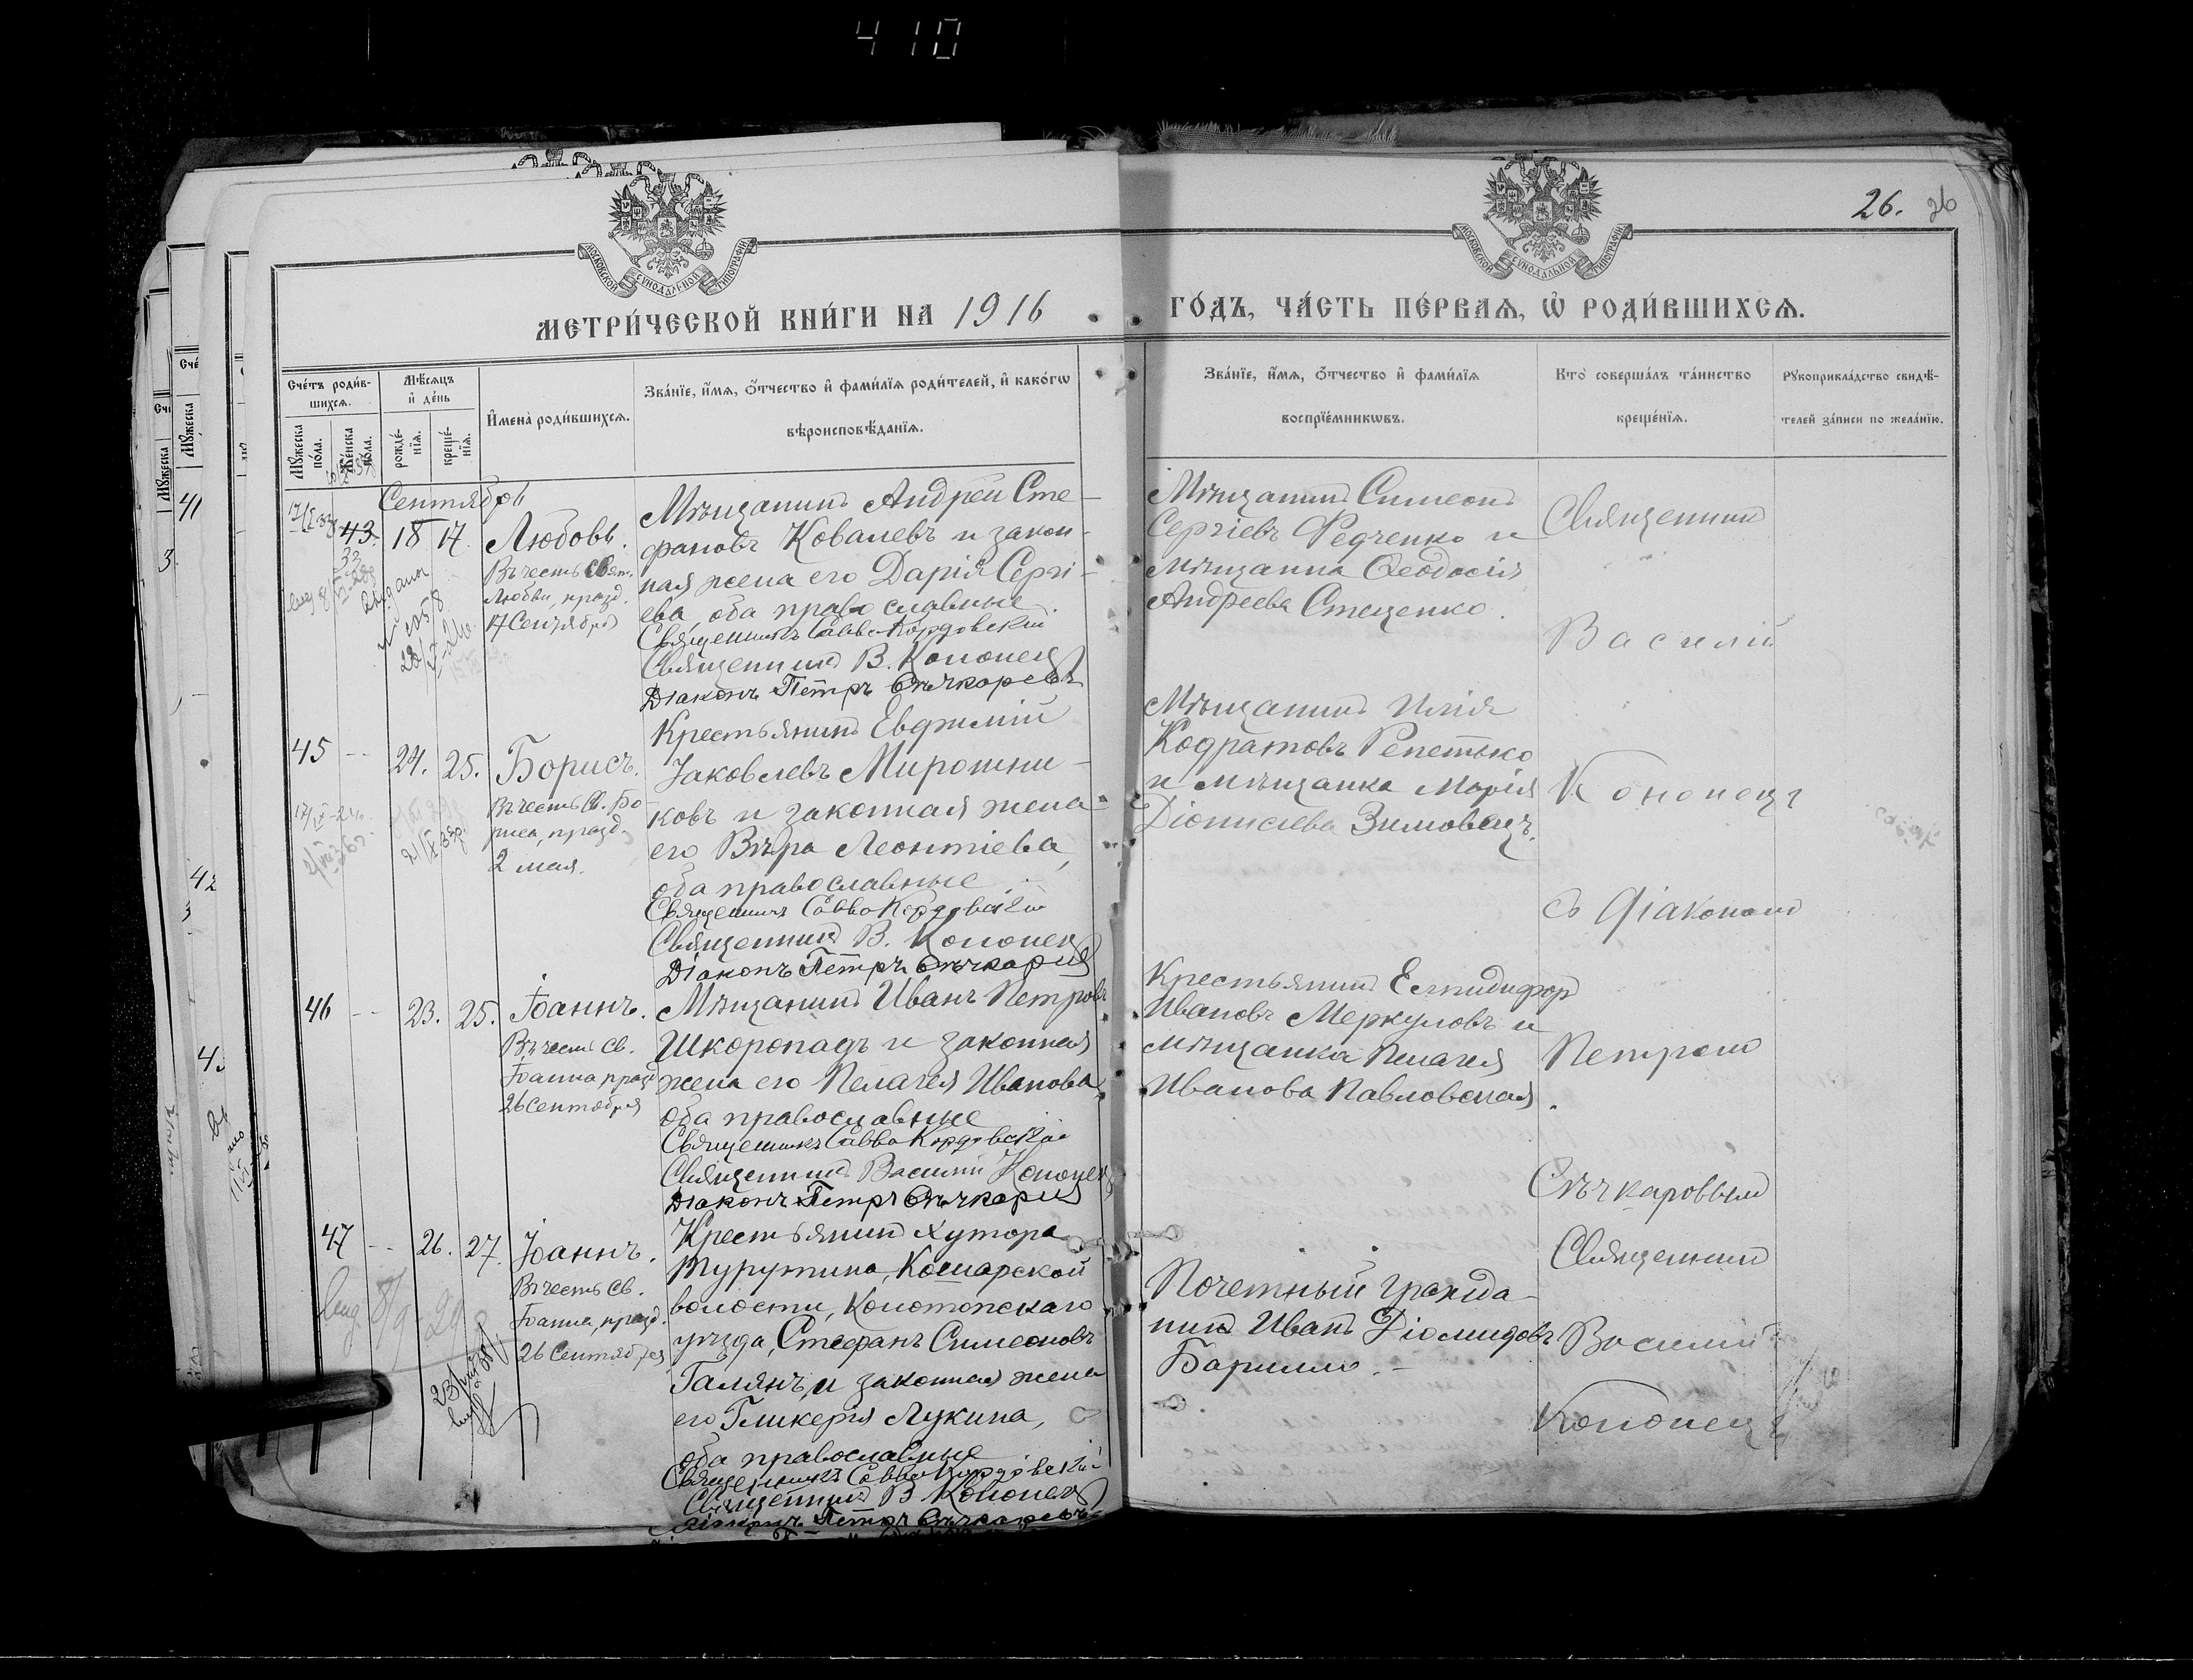 410
26. 26
МОСКОВСКОЙ СУНОДАЛЬНОЙ ТИПОГРАФІИ
МОСКОВСКОЙ СУНОДАЛЬНОЙ ТИПОГРАФІИ
МЕТРИ́ЧЕСКОЙ КНИ́ГИ НА 1916
ГО́ДЪ, ЧА́СТЬ ПЕ́РВАЯ, Ѡ РОДИ́ВШИХСЯ.
Сче́тъ роди́в-
шихся.
Мꙋжеска по́ла.
Же́нска по́ла.
Мѣ́сяцъ
и҆ де́нь
рожде́-
нїя.
креще́-
нїя.
И҆мена̀ роди́вшихся.
Зва́нїе, и҆́мя, ѻ҆́тчество и҆ фами́лїя роди́телей, и҆ како́гѡ
вѣроисповѣ́данїя.
Зва́нїе, и҆́мя, ѻ҆́тчество и҆ фами́лїя
воспрїе́мникѡвъ.
Кто̀ соверша́лъ та́инство
креще́нїя.
Рꙋкоприкла́дство свидѣ́-
телей за́писи по жела́нїю.
Сентябрь
43. 18 17. Любовь.
Въ честь Свят.
Любви, празд.
17 Сентября
Мѣщанинъ Андрей Сте-
фановъ Ковалевъ и закон-
ная жена его Дарія Сергі-
ева, оба православные.
Священникъ Савва Кордовскій
Священникъ В. Кононецъ
Діаконъ Петръ Сѣчкаревъ
Мѣщанинъ Симеонъ
Сергіевъ Федченко и
мѣщанка Ѳеодосія
Андреева Стеценко.
Священникъ
Василій
45 -- 24. 25. Борисъ.
Въ честь Св. Бо
риса, празд.
2 мая.
Крестьянинъ Евфимій
Іаковлевъ Мирошни-
ковъ и законная жена
его Вѣра Леонтіева,
оба православные
Священникъ Савва Кордовскій
Священникъ В. Кононецъ
Діаконъ Петръ Сѣчкаревъ
Мѣщанинъ Илія
Кодратовъ Репетько
и мѣщанка Марія
Діонисіева Зимовецъ.
Кононецъ
съ Діакономъ
46 -- 23. 25. Іоаннъ.
Въ честь Св.
Іоанна, празд
26 Сентября
Мѣщанинъ Иванъ Петровъ
Шкоропадъ и законная
жена его Пелагея Иванова,
оба православные
Священникъ Савва Кордовскій
Священникъ Василій Кононецъ
Діаконъ Петръ Сѣчкаревъ
Крестьянинъ Елпидифор
Ивановъ Меркуловъ и
мѣщанка Пелагея
Иванова Павловская.
Петромъ
Сѣчкаровымъ
47 -- 26. 27. Іоаннъ.
Въ честь Св.
Іоанна, празд.
26 Сентября
Крестьянинъ хутора
Турутина, Кошарской
волости, Конотопскаго
уѣзда, Стефанъ Симеоновъ
Галянъ, и законная жена
его Гликерія Лукина,
оба православные
Священникъ Савва Кордовскій
Священникъ В Кононецъ
Діаконъ Петръ Сѣчкаревъ
Почетный гражда-
нинъ Иванъ Діомидовъ
Барилло.-
Священникъ
Василій
Кононецъ